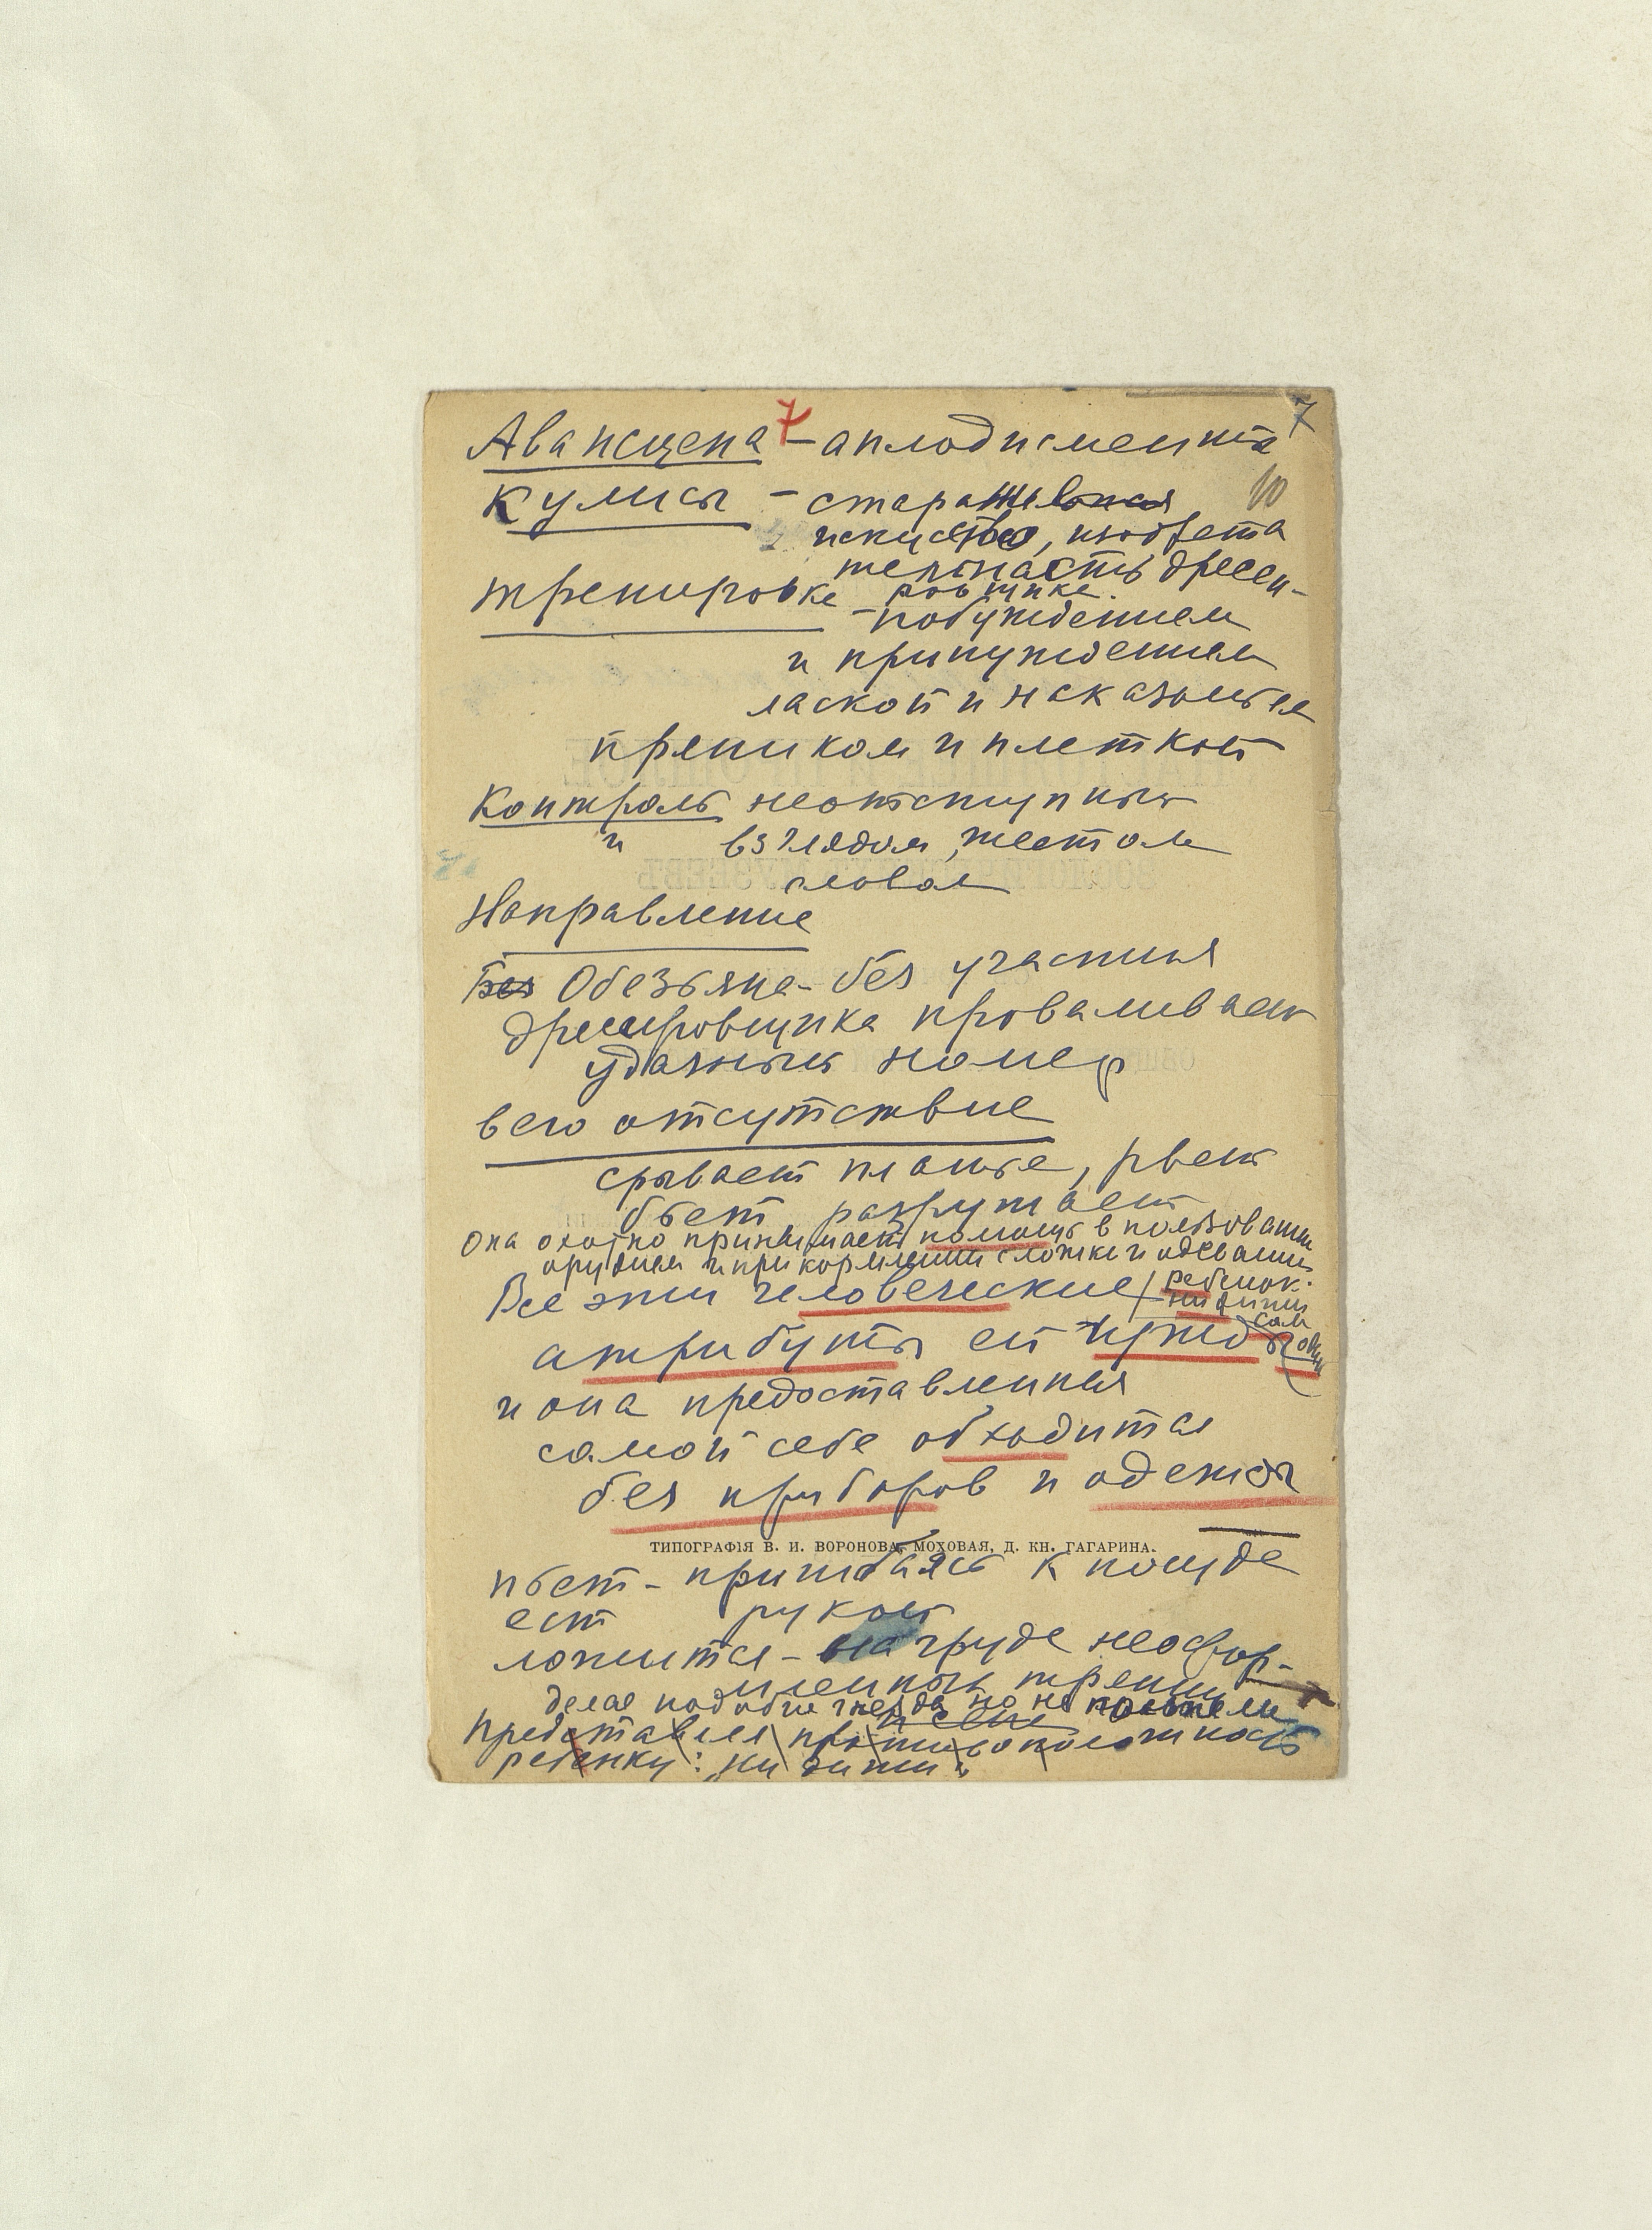 7 7
Авансцена – аплодисменты
10
Кулисы – старательная
искуство, изобрета
тельность дресси-
тренировке ровщика.
– побуждением
и принуждением
лаской и наказаньем
пряником и плеткой
Контроль неотступный
и взглядом, жестом
словом
Направление
Без Обезьяна – без участия
дрессировщика проваливает
удачный номер
в его отсутствие
срывает платье, рвет
бьет, разрушает
Она охотно принимает помощь в пользовании
орудием и при кормлении с ложки и одевании
Все эти человеческие (ребенок.
ни дити
сам
атрибуты ей чужды
и она предоставленная
самой себе обходится
без приборов и одежды
ТИПОГРАФІЯ В. И. ВОРОНОВА, МОХОВАЯ, Д. КН. ГАГАРИНА.
пьет – пригибаясь к посуде
ест рукой
ложится – на груде неофор-
мленной
делая подобие гнезда но не постели
Представляя противоположность
ребенку: „ни дити“